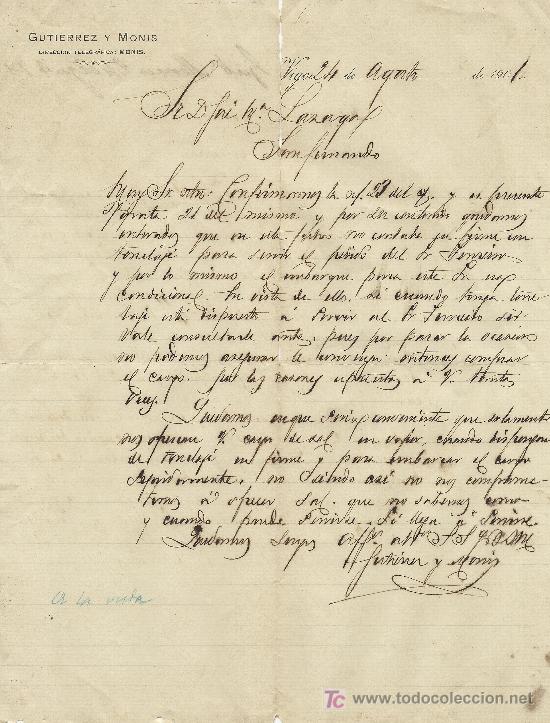 GUTIERREZ Y MONIS
DIRECCIÓN TELEGRÁFICA: MONIS.
Vigo 24 de Agosto de 1901
Sr Dn José Ma Lazaga
San Fernando
Muy Sr. ntro: Confirmamos la ntra. 23 del y en presente
21 del mismo y por su contenido quedamos
enterados que en esta fecha no contaba en firme con
tonelaje para servir el pedido del Sr
y por lo mismo el embarque para este Sr. era
condicional. En vista de ello, si cuando tenga tone
laje está dispuesto á servir al Sr
vale consultarle antes, pues por pasar la ocasion
no podemos asegurar le convenga entonces comprar
el cargo por las razones expuestas á V.
pues.
Quedamos en que será conveniente que solamente
nos ofrezca V. cargo de sal en vapor, cuando disponga
de tonelaje en firme y para embarcar el cargo
rapidamente, no siendo así no nos comprome-
temos á ofrecer sal que no sabemos como
y cuando puede venirse si llega á venir.
Quedamos suyos affmos. S.S.
Gutiérrez y Monis
A la vista
TC www.todocoleccion.net